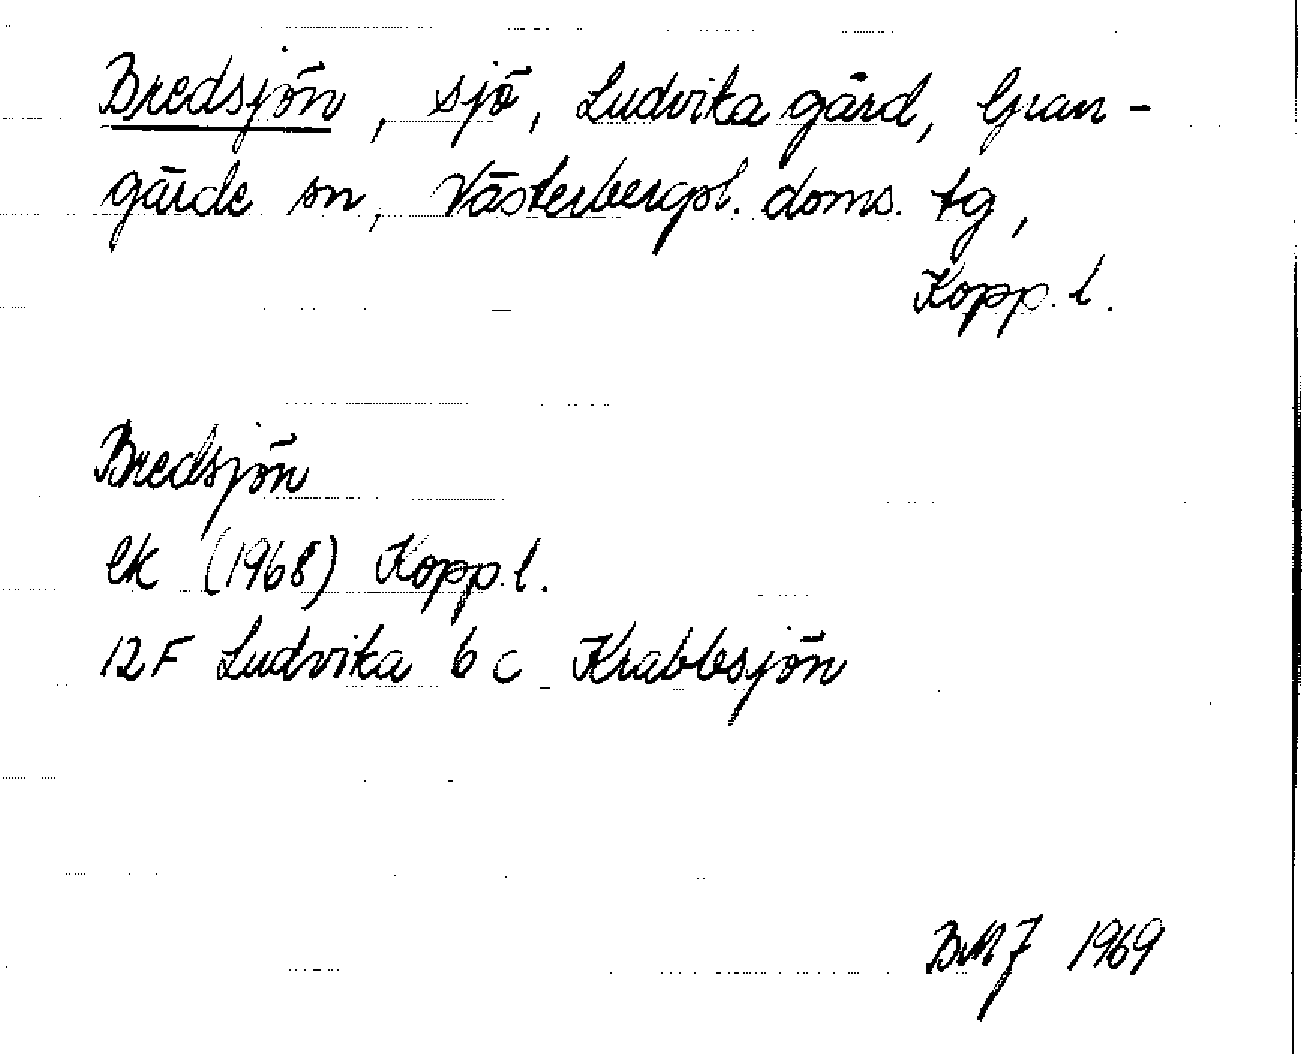 Bredsjön, sjö, Ludvika gård, Gran-
gärde sn, Västerbergsl. doms. tg,
Kopp. l.
Bredsjön
ek (1968) Kopp. l.
12F Ludvika 6 c Krabbsjön
BMJ 1969